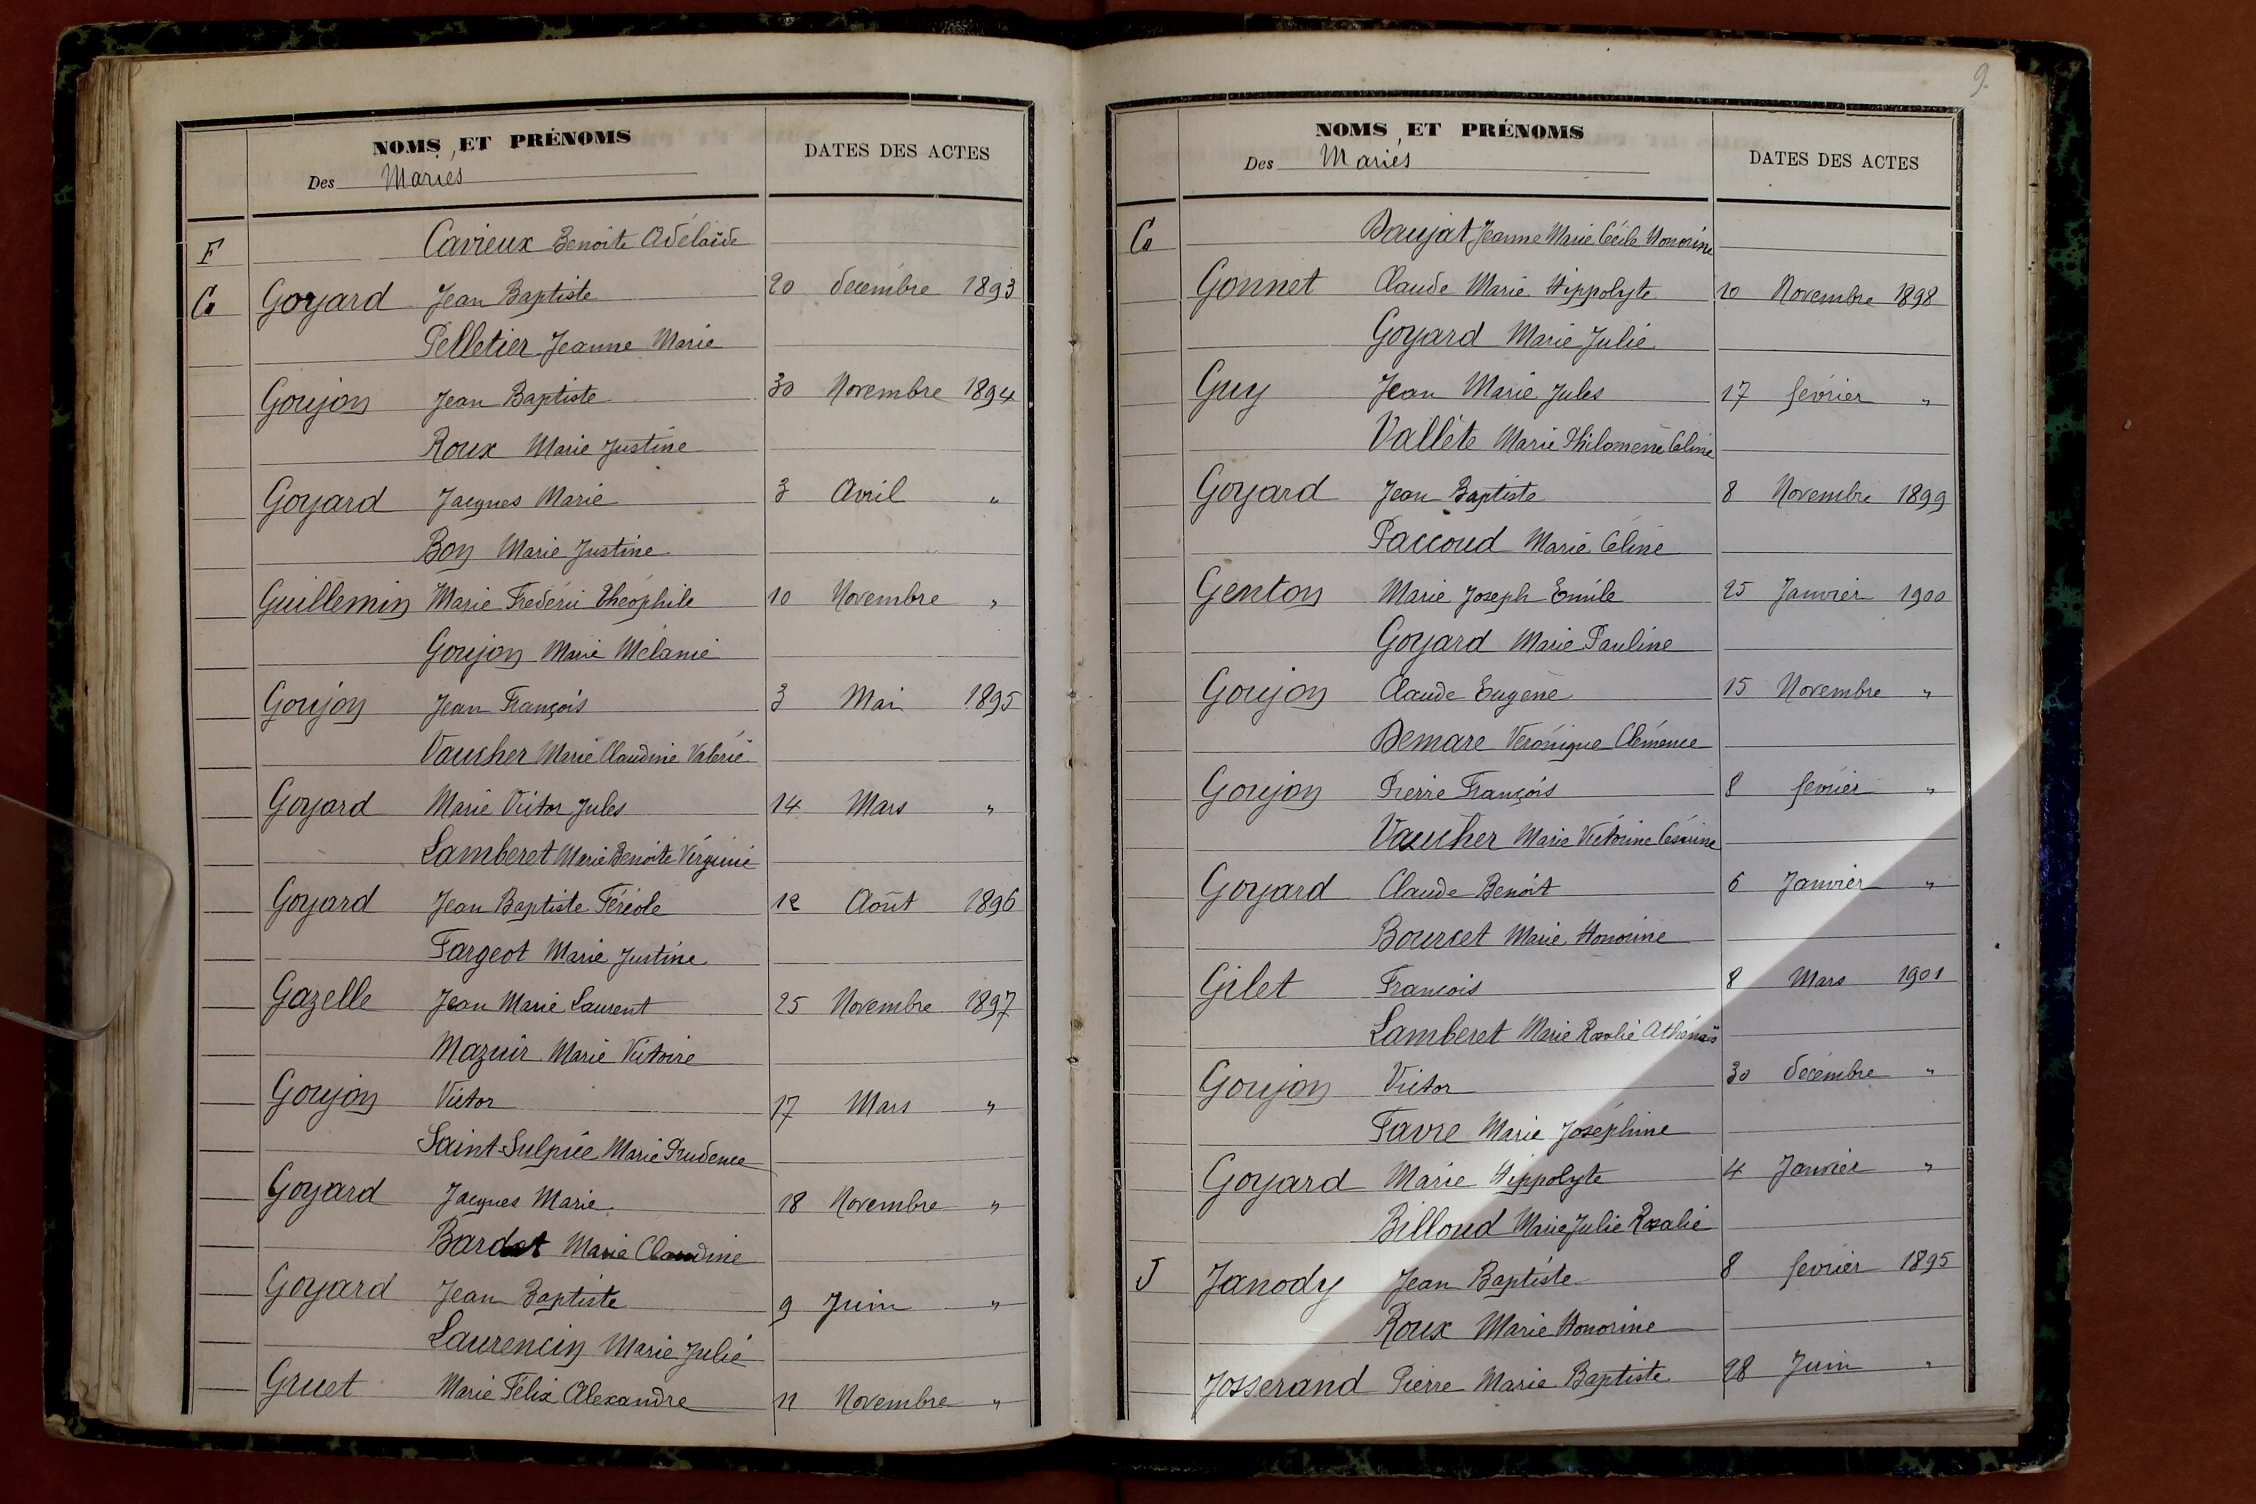 NOMS ET PRÉNOMS
Des Mariés
DATES DES ACTES
F Cavieux Benoite Adélaïde
G Goyard Jean Baptiste 20 décembre 1893
Pelletier Jeanne Marie
Goujon Jean Baptiste 30 Novembre 1894
Roux Marie Justine
Goyard Jacques Marie 3 Avril "
Bon Marie Justine
Guillemin Marie Fréderic Théophile 10 Novembre "
Goujon Marie Mélanie
Goujon Jean François 3 Mai 1895
Vaucher Marie Claudine Valérie
Goyard Marie Victor Jules 14 Mars "
Lamberet Marie Benoite Virginie
Goyard Jean Baptiste Féréole 12 Août 1896
Fargeot Marie Justine
Gazelle Jean Marie Laurent 25 Novembre 1897
Mazuir Marie Victoire
Goujon Victor 17 Mars "
Saint-Sulpice Marie Prudence
Goyard Jacques Marie 18 Novembre "
Bardet Marie Claudine
Goyard Jean Baptiste 9 Juin "
Laurencin Marie Julie
Gruet Marie Félix Alexandre 11 Novembre "
9.
NOMS ET PRÉNOMS
Des Mariés
DATES DES ACTES
G Daujat Jeanne Marie Cécile Honorine
Gonnet Claude Marie Hippolyte 10 Novembre 1898
Goyard Marie Julie
Guy Jean Marie Jules 17 février "
Vallète Marie Philomène Céline
Goyard Jean Baptiste 8 Novembre 1899
Paccoud Marie Céline
Genton Marie Joseph Emile 25 Janvier 1900
Goyard Marie Pauline
Goujon Claude Eugène 15 Novembre "
Demare Véronique Clémence
Goujon Pierre François 8 février "
Vaucher Marie Victorine Césarine
Goyard Claude Benoit 6 Janvier "
Bourcet Marie Honorine
Gilet François 8 Mars 1901
Lamberet Marie Rosalie Athénaïs
Goujon Victor 30 décembre "
Favre Marie Joséphine
Goyard Marie Hippolyte 4 Janvier "
Billoud Marie Julie Rosalie
J Janody Jean Baptiste 8 février 1895
Roux Marie Honorine
Josserand Pierre Marie Baptiste 28 Juin "